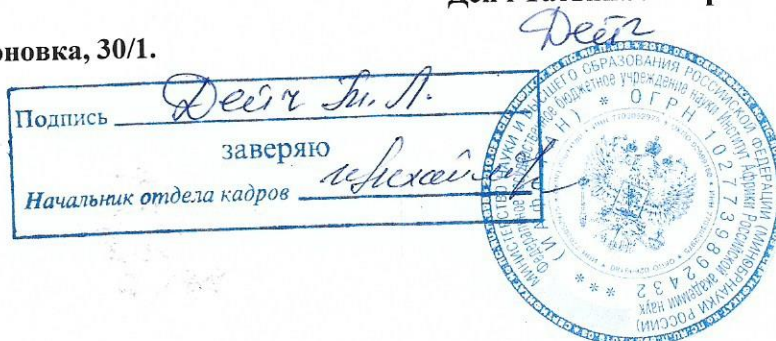 Дейч
оновка, 30/1.
Подпись Дейч Т. Л.
заверяю
Начальник отдела кадров
МИНИСТЕРСТВО НАУКИ И ВЫСШЕГО ОБРАЗОВАНИЯ РОССИЙСКОЙ ФЕДЕРАЦИИ (МИНОБРНАУКИ РОССИИ)
Федеральное государственное бюджетное учреждение науки Институт Африки Российской академии наук
(ИАфр РАН) * ОГРН 1027739892432 * * *